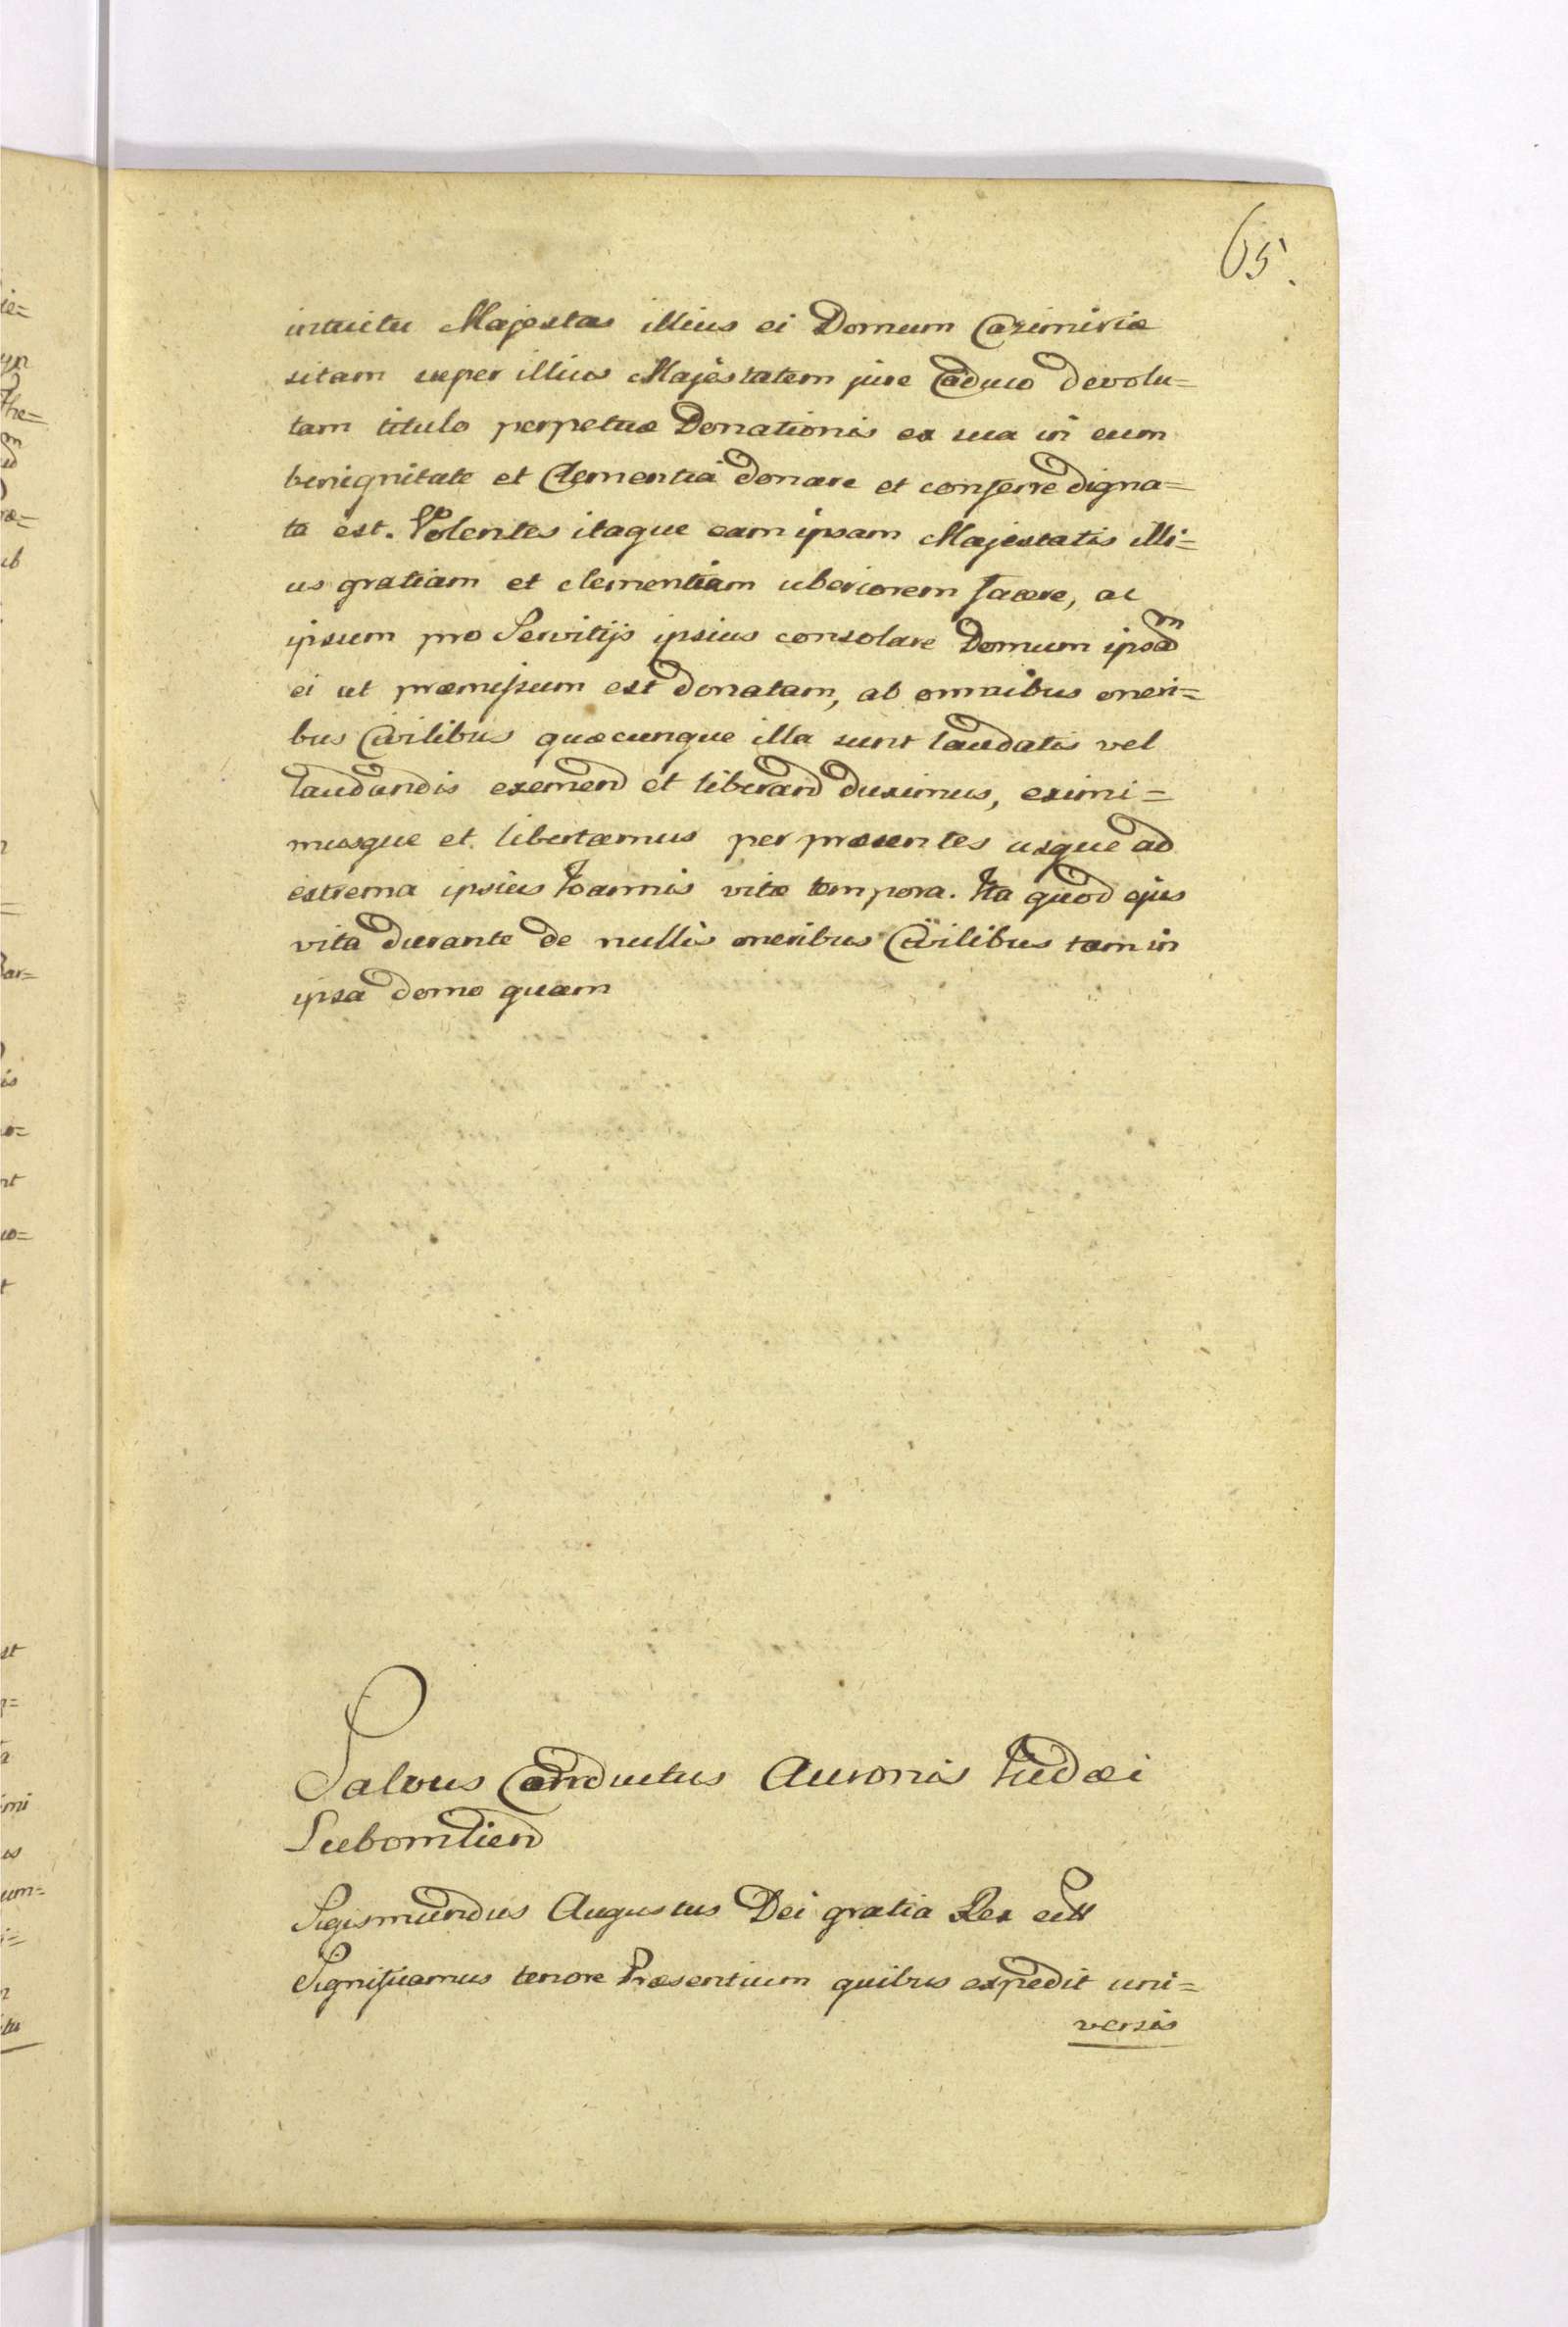 65.
intuitu Majestas illius ei Domum Casimiriæ
sitam super illius Majestatem jure Caduco devolu=
tam titulo perpetuæ Donationis ex sua in eum
benignitate et Clementia donare et conferre digna=
ta est. Volentes itaque eam ipsam Majestatis illi=
us gratiam et clementiam uberiorem facere, ac
ipsum pro Servitijs ipsius consolare Domum ipsam
ei ut præmissum est donatam, ab omnibus oneri=
bus Civilibus quæcunque illa sunt laudatis vel
laudandis eximend et liberand duximus, eximi=
musque et libertamus per præsentes usque ad
extrema ipsius Ioannis vitæ tempora. Ita quod ejus
vita durante de nullis oneribus Civilibus tam in
ipsa domo quam
Salvus Conductus Auronis Iudæi
Lubomlien
Sigismundus Augustus Dei gratia Rex ett
Significamus tenore Præsentium quibus expedit uni=
versis